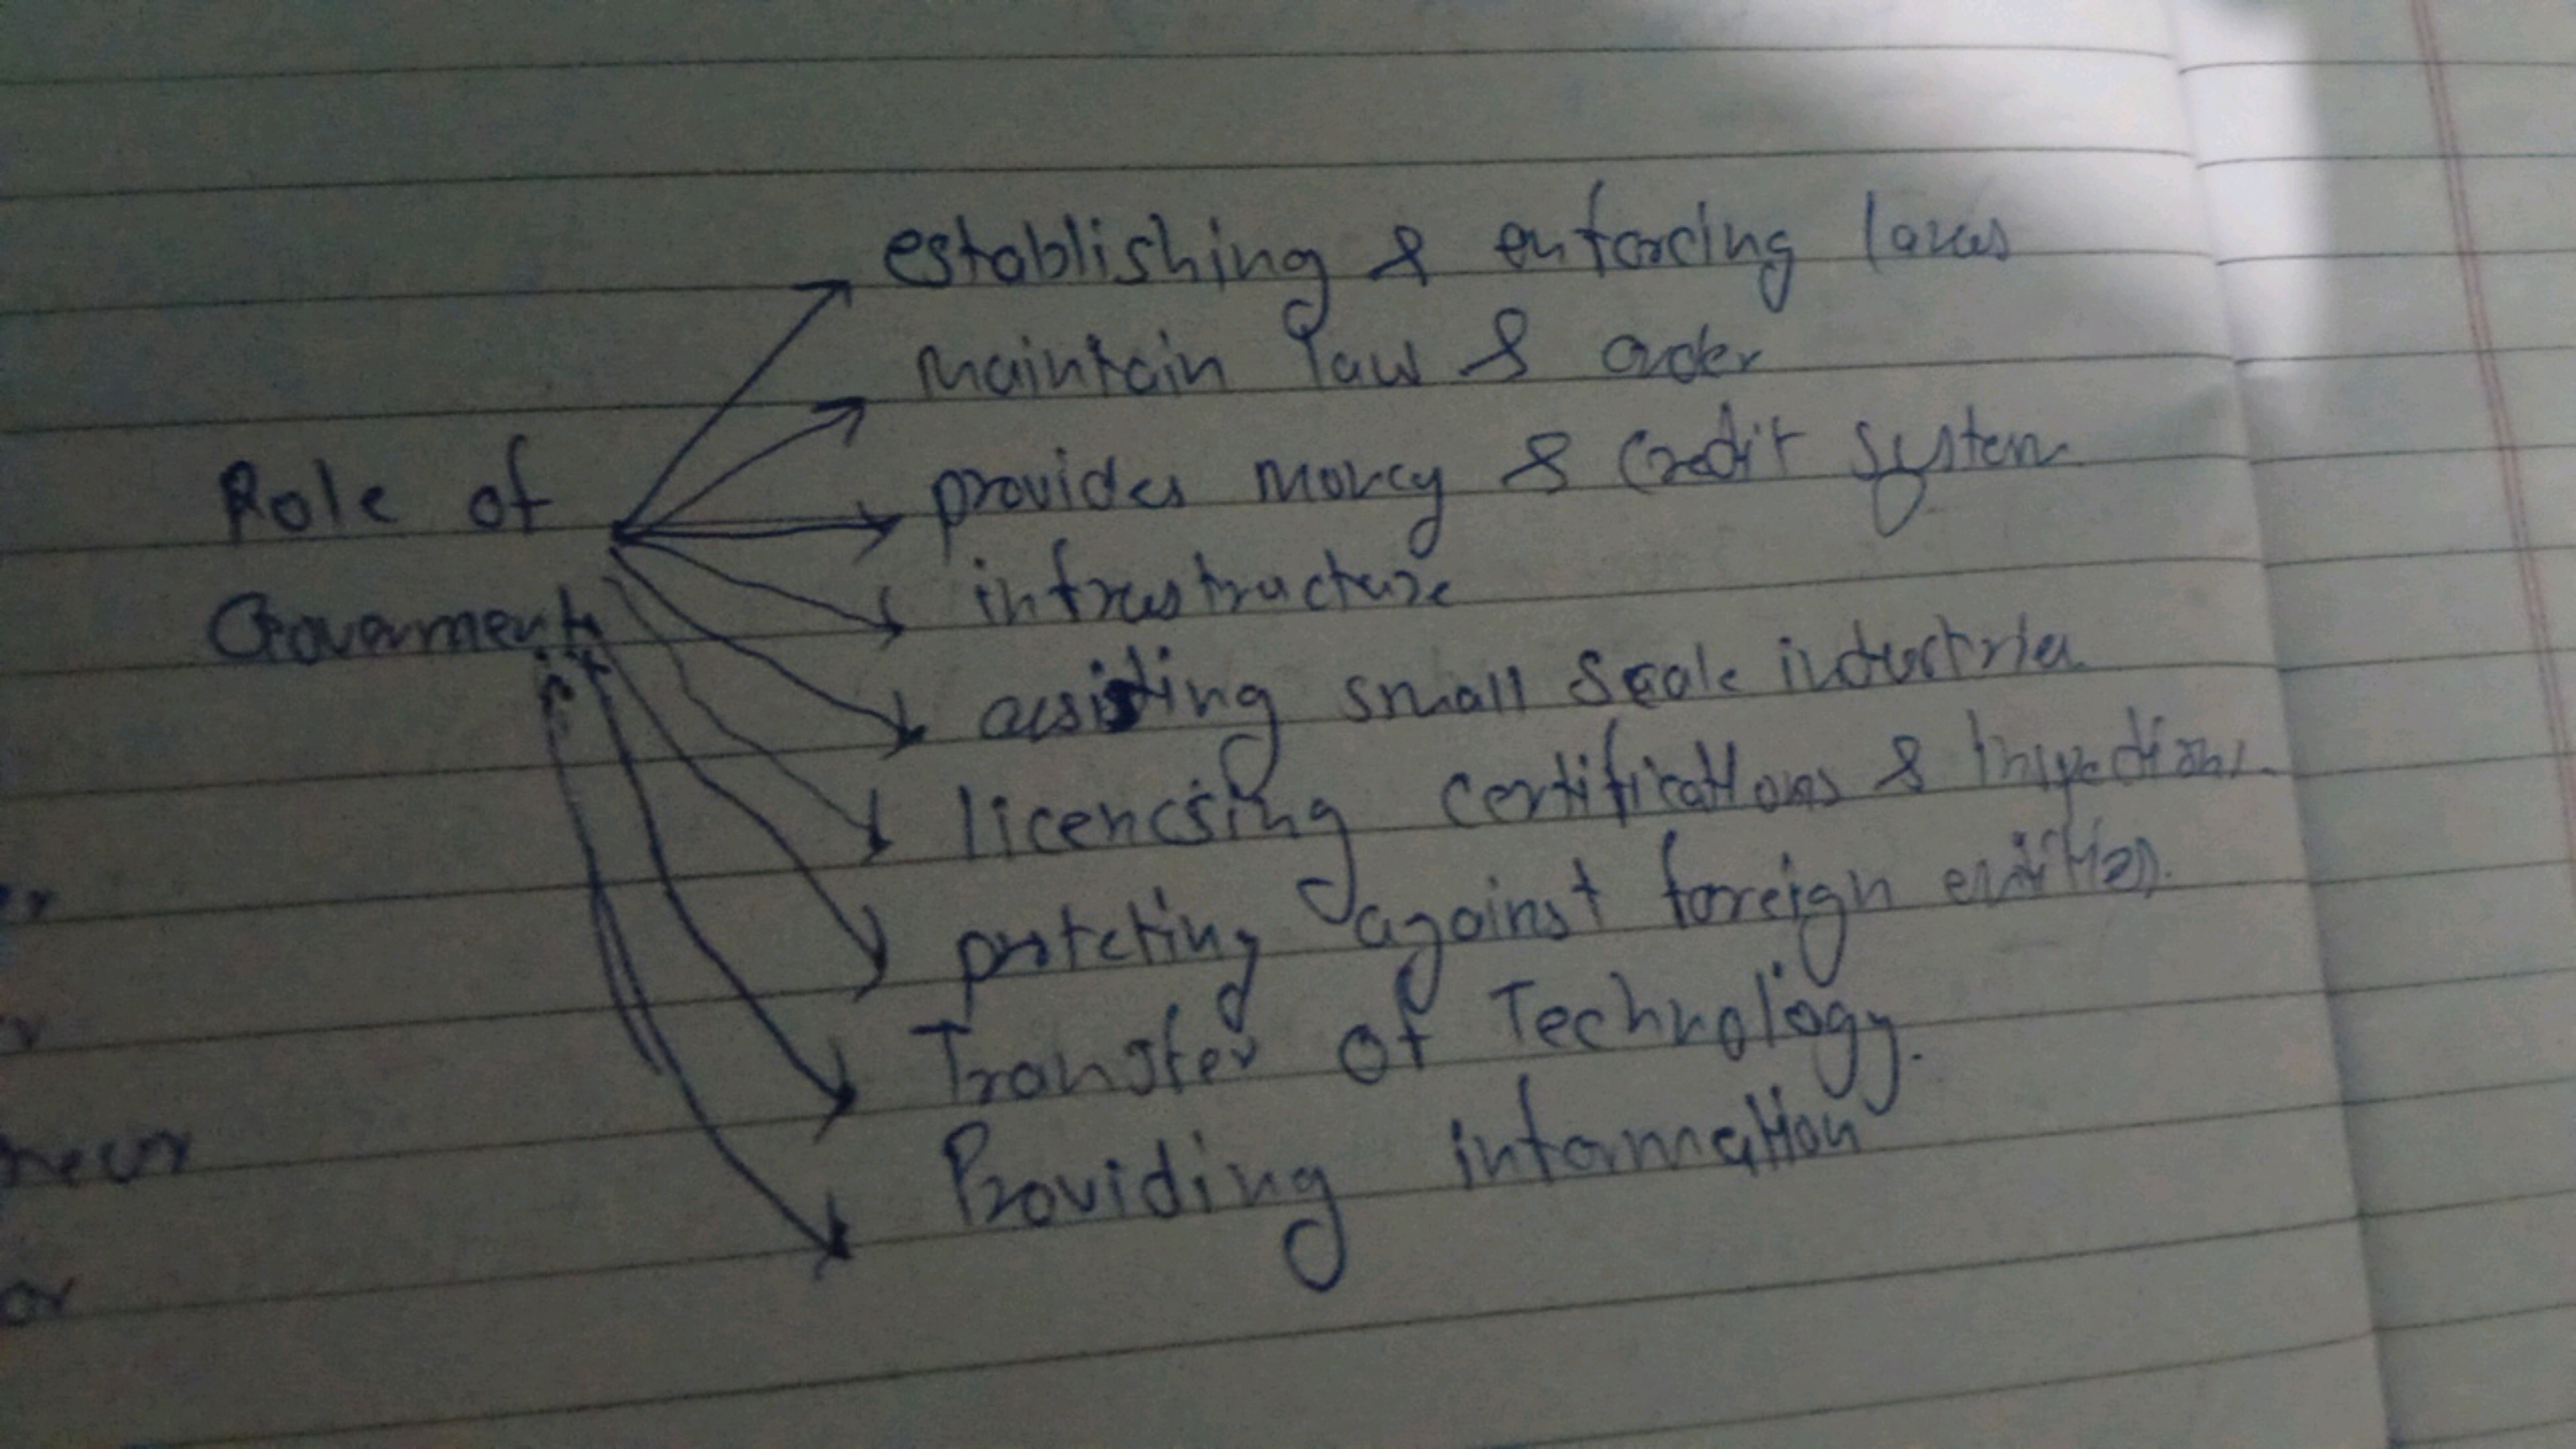 establishing & enforcing laws
maintain law & order
Role of
provides money & credit system
infrastructure
Government
assisting small scale industries
licencsing certifications & Inspections.
protcting against foreign entities.
Transfer of Technology.
Providing information
or